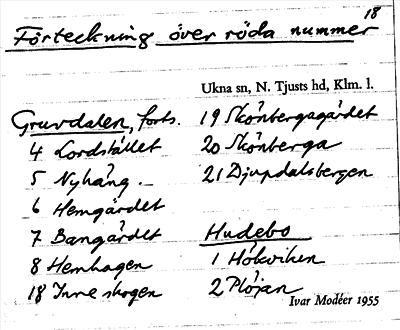 18
Förteckning över röda nummer
Ukna sn, N. Tjusts hd, Klm. l.
Gruvdalen, forts.
4 Lordstället
5 Nyhäng.
6 Hemgärdet
7 Bangärdet
8 Hemhagen
18 Inre skogen
19 Skönbergagärdet
20 Skönberga
21 Djupdalsbergen
Hudebo
1 Hökviken
2 Plöjan
Ivar Modéer 1955